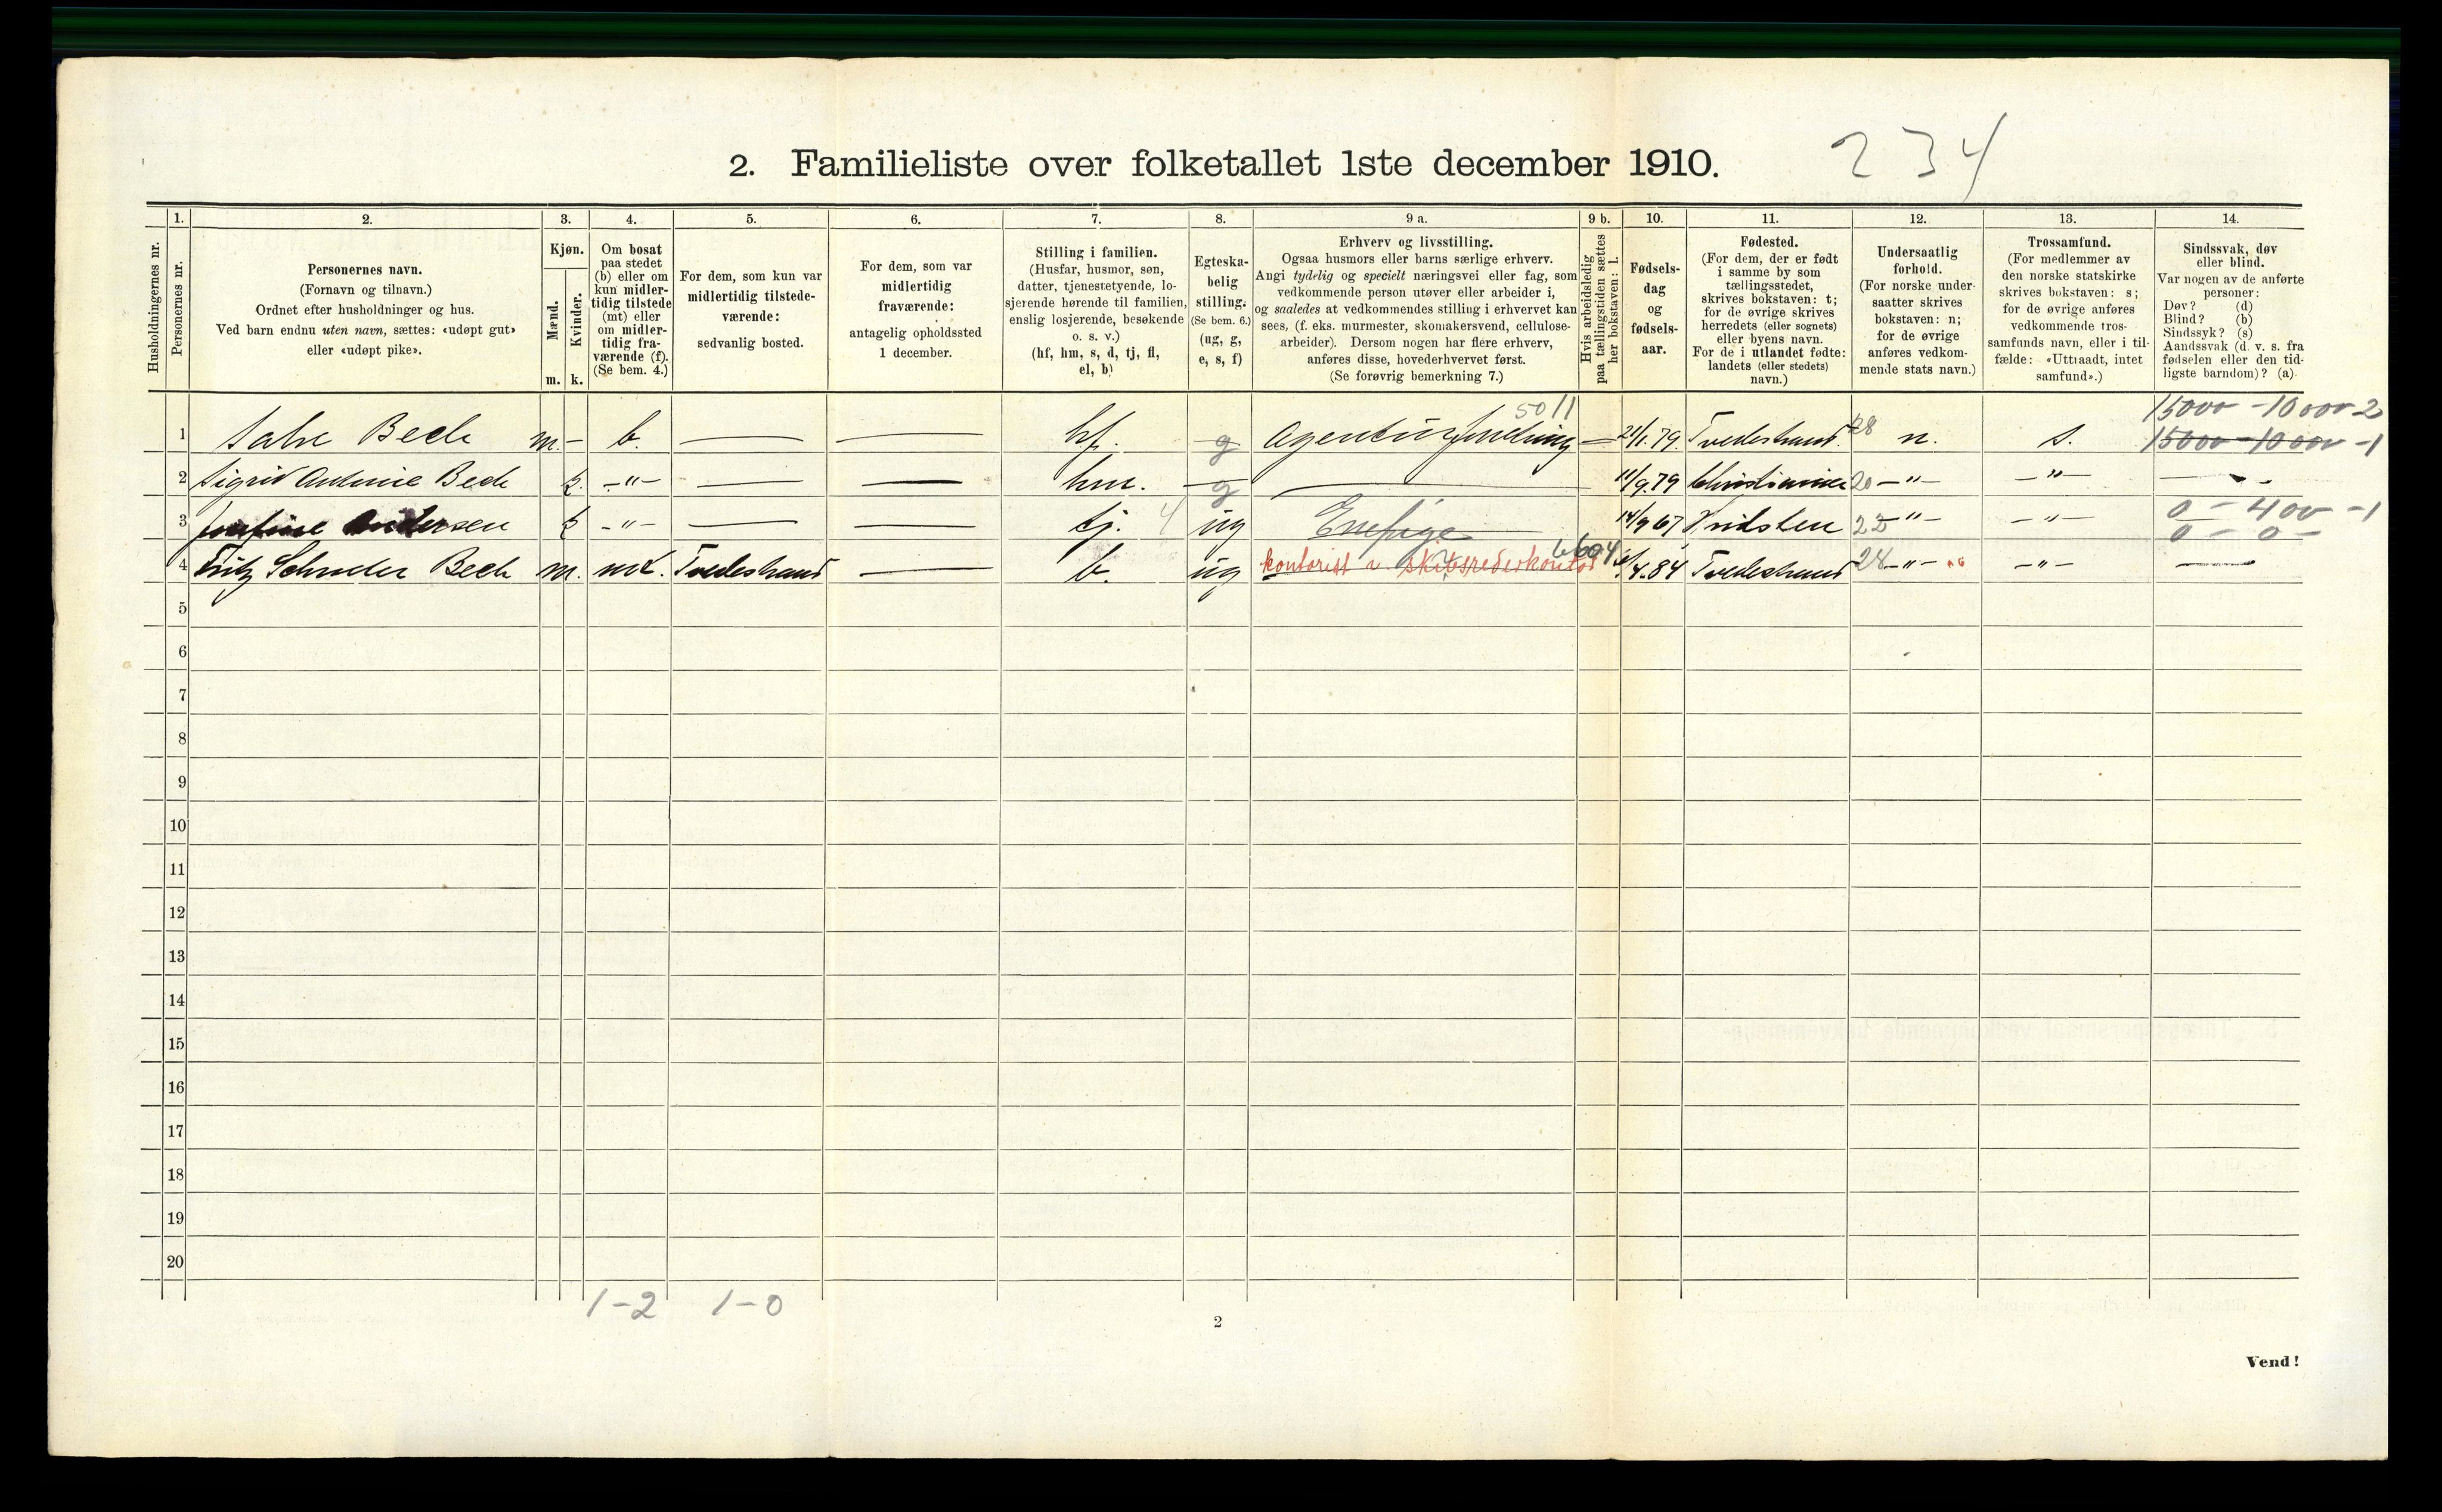 2. Familieliste over folketallet 1ste december 1910.
234
Husholdningernes nr.
1.
Personernes nr.
2.
Personernes navn.
(Fornavn og tilnavn.)
Ordnet efter husholdninger og hus.
Ved barn endnu uten navn, sættes: «udøpt gut»
eller «udøpt pike».
3.
Kjøn.
Mænd.
Kvinder.
m. k.
4.
Om bosat
paa stedet
(b) eller om
kun midler-
tidig tilstede
(mt) eller
om midler-
tidig fra-
værende (f).
(Se bem. 4.)
5.
For dem, som kun var
midlertidig tilstede-
værende:
sedvanlig bosted.
6.
For dem, som var
midlertidig
fraværende:
antagelig opholdssted
1 december.
7.
Stilling i familien.
(Husfar, husmor, søn,
datter, tjenestetyende, lo-
sjerende hørende til familien,
enslig losjerende, besøkende
o. s. v.)
(hf, hm, s, d, tj, fl,
el, b)
8.
Egteska-
belig
stilling.
(Se bem. 6.)
(ug, g,
e, s, f)
9 a.
Erhverv og livsstilling.
Ogsaa husmors eller barns særlige erhverv.
Angi tydelig og specielt næringsvei eller fag, som
vedkommende person utøver eller arbeider i,
og saaledes at vedkommendes stilling i erhvervet kan
sees, (f. eks. murmester, skomakersvend, cellulose-
arbeider). Dersom nogen har flere erhverv,
anføres disse, hovederhvervet først.
(Se forøvrig bemerkning 7.)
9 b.
Hvis arbeidsledig
paa tællingstiden sættes
her bokstaven: l.
10.
Fødsels-
dag
og
fødsels-
aar.
11.
Fødested.
(For dem, der er født
i samme by som
tællingsstedet,
skrives bokstaven: t;
for de øvrige skrives
herredets (eller sognets)
eller byens navn.
For de i utlandet fødte:
landets (eller stedets)
navn.)
12.
Undersaatlig
forhold.
(For norske under-
saatter skrives
bokstaven: n;
for de øvrige
anføres vedkom-
mende stats navn.)
13.
Trossamfund.
(For medlemmer av
den norske statskirke
skrives bokstaven: s;
for de øvrige anføres
vedkommende tros-
samfunds navn, eller i til-
fælde: «Uttraadt, intet
samfund».)
14.
Sindssvak, døv
eller blind.
Var nogen av de anførte
personer:
Døv? (d)
Blind? (b)
Sindssyk? (s)
Aandssvak (d. v. s. fra
fødselen eller den tid-
ligste barndom)? (a).
5011 15000 - 10000 - 2
1 Salve Bech m. - b. — — hf. g Agenturforretning — 21/1.79. Tvedestrand. 28 n. s. 15000 - 10000 - 1
2 Sigrid Antonie Bech k. -"- — — hm. g — 11/9.79 Christiania 20 -"- -"- —
3 Josefine Andersen k -"- — — tj. 4 ug Enepige 14/9 67 Hvidsten 22 -"- -"- 0 - 400 - 1
0 - 0 -
6604
4 Fritz Schrøder Bech m. mt. Tvedestrand — b. ug kontorist v skibsrederkontor /4.84 Tvedestrand 28 -"- -"- —
5
6
7
8
9
10
11
12
13
14
15
16
17
18
19
20
1-2 1-0
2
Vend!